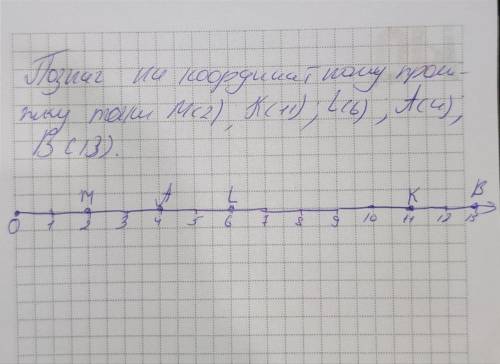 Познач на координатному промі-
ню точки M(2), K(11); L(6), A(4);
B(13).
M A L K B
0 1 2 3 4 5 6 7 8 9 10 11 12 13